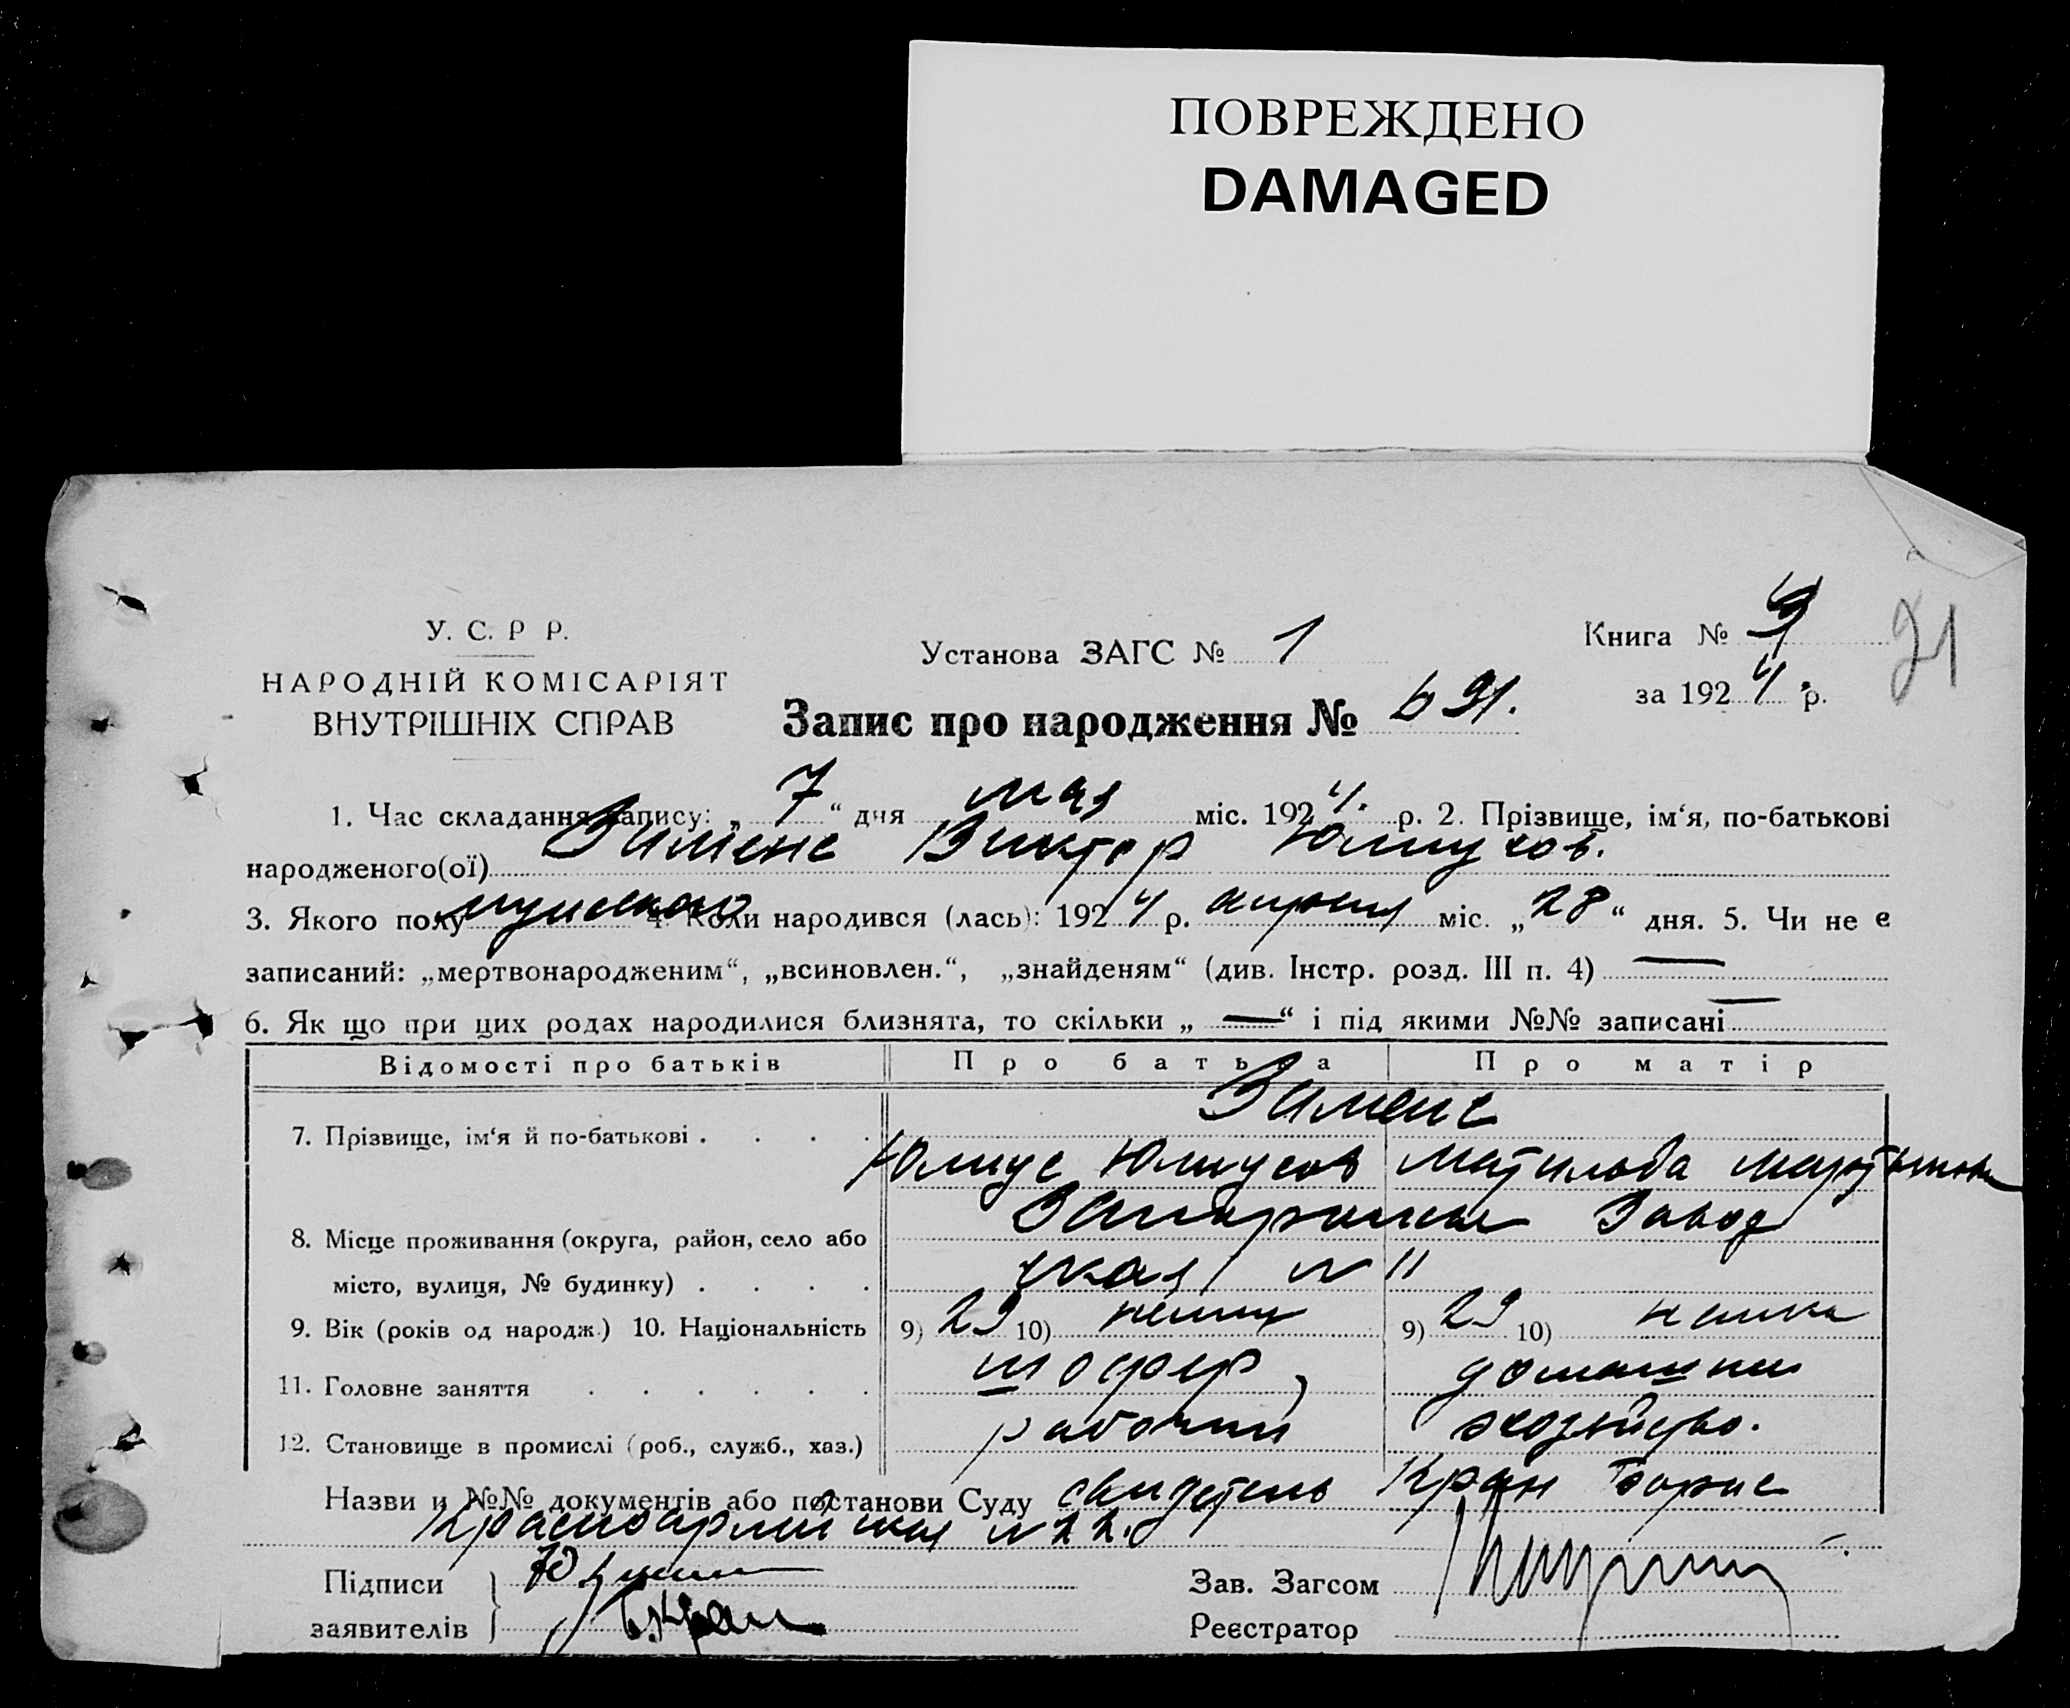 ПОВРЕЖДЕНО
DAMAGED
У. С. Р Р.
НАРОДНІЙ КОМІСАРІЯТ
ВНУТРІШНІХ СПРАВ
Установа ЗАГС № 1
Книга № 9
за 1924 р.
21
Запис про народження № 691.
1. Час складання запису: „7“ дня мая міс. 1924. р. 2. Прізвище, ім‘я, по-батькові
народженого(ої) Зименс Виктор Юлиусов.
3. Якого полу мужского 4. Коли народився (лась): 1924 р. апреля міс. „28“ дня. 5. Чи не є
записаний: „мертвонародженим“, „всиновлен.“, „знайденям“ (див. Інстр. розд. III п. 4) —
6. Як що при цих родах народилися близнята, то скільки „—“ і під якими №№ записані —
Відомості про батьків Про батька Про матір
Зименс
7. Прізвище, ім‘я й по-батькові . . . .
Юлиус Юлиусов Матильда Мартынов
8. Місце проживання (округа, район, село або Завод
місто, вулиця, № будинку) . . . . ская N 11
9. Вік (років од народж.) 10. Національність 9) 29 10) немец 9) 29 10) немка
11. Головне заняття . . . . . . шофер, домашнее
12. Становище в промислі (роб., служб., хаз.) рабочий хозяйство.
Назви и №№ документів або постанови Суду свидетель Кран Борис
Красноармейская N 22.
Підписи
заявителів Б.Кран
Зав. Загсом
Реєстратор